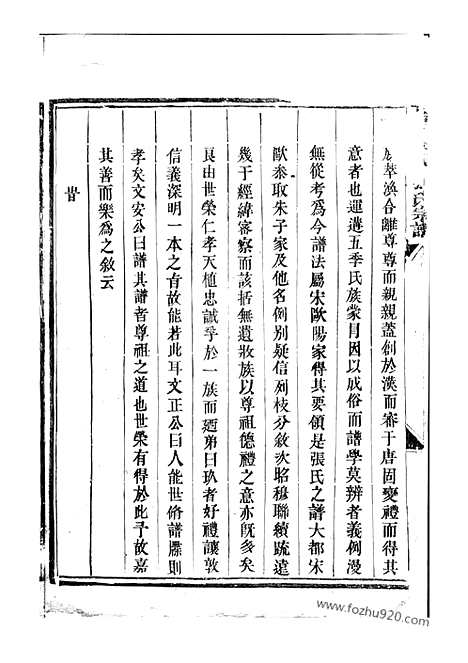 萃渙合離尊尊而親親蓋創於漢而審于唐固変禮而得其
意者也運遘五季氏族蒙目因以成俗而譜學莫辨者義例漫
無從考爲今譜法屬宋歐陽家得其要領是張氏之譜大都宋
歐叅取朱子家及他名例別疑信列枝分敘次昭穆聯續踈遠
幾于經緯宻察而該括無遺牧族以尊祖德禮之意亦旣多矣
良由世榮仁孝天植忠誠孚於一族而廼弟曰玖者好禮讓敦
信義深明一本之肯故能若此耳文正公曰人能世脩譜牒則
孝矣文安公曰譜其譜者尊祖之道也世榮有得於此予故嘉
其善而樂爲之敘云
旹
氏宗譜
www.fozhu920.com